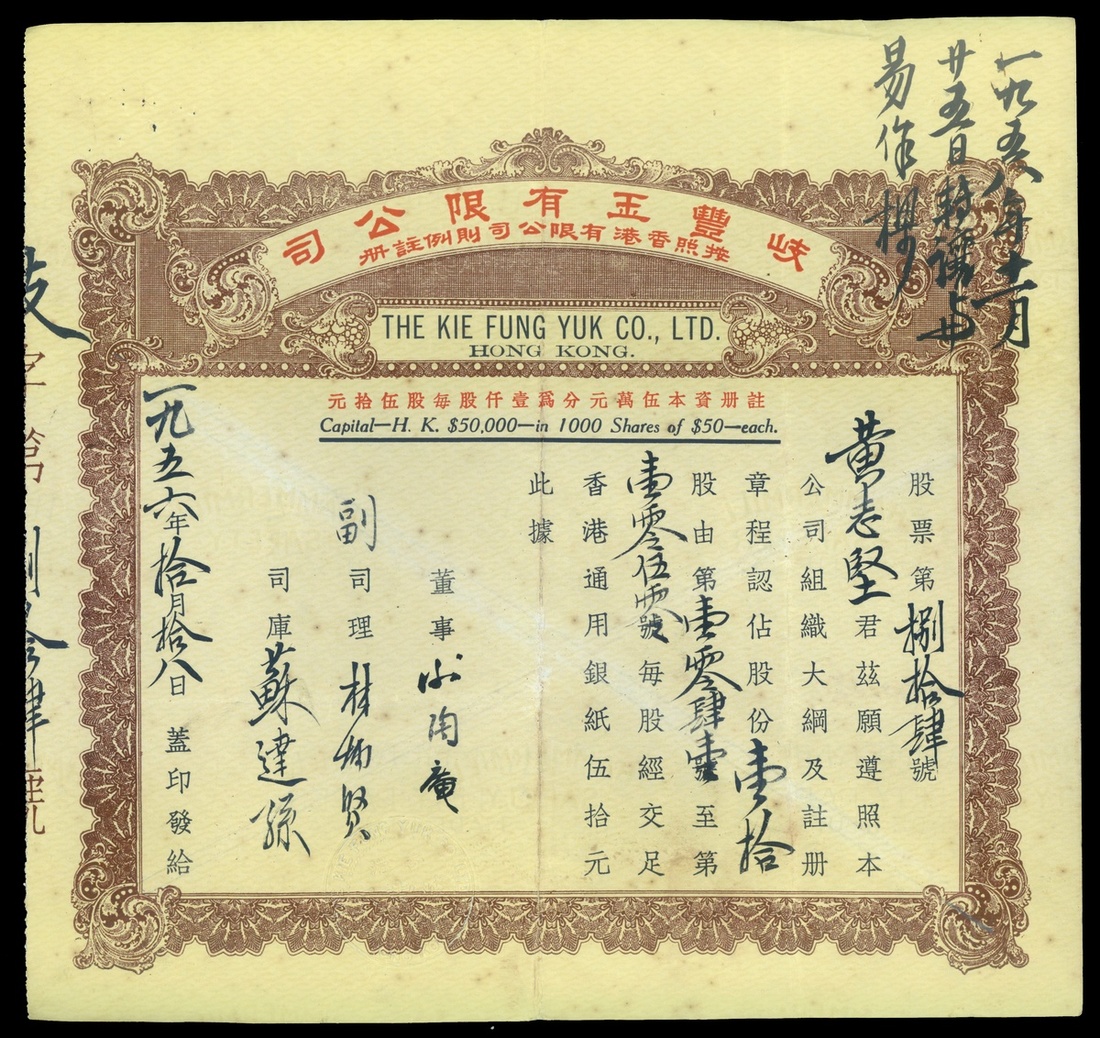 一九五八年十一月
廿五日轉讓与
易作櫻
岐豐玉有限公司
按照香港有限公司則例註册
THE KIE FUNG YUK CO., LTD.
HONG KONG.
註册資本伍萬元分爲壹仟股每股伍拾元
Capital—H. K. $50,000—in 1000 Shares of $50—each.
股票第捌拾肆號
黄志堅君茲願遵照本
公司組織大綱及註册
章程認佔股份壹拾
股由第壹零肆壹號至第
壹零伍零號每股經交足
香港通用銀紙伍拾元
此據
董事
副司理
司庫蘇達孫
一九五六年拾月拾八日蓋印發給
岐字第捌拾肆號